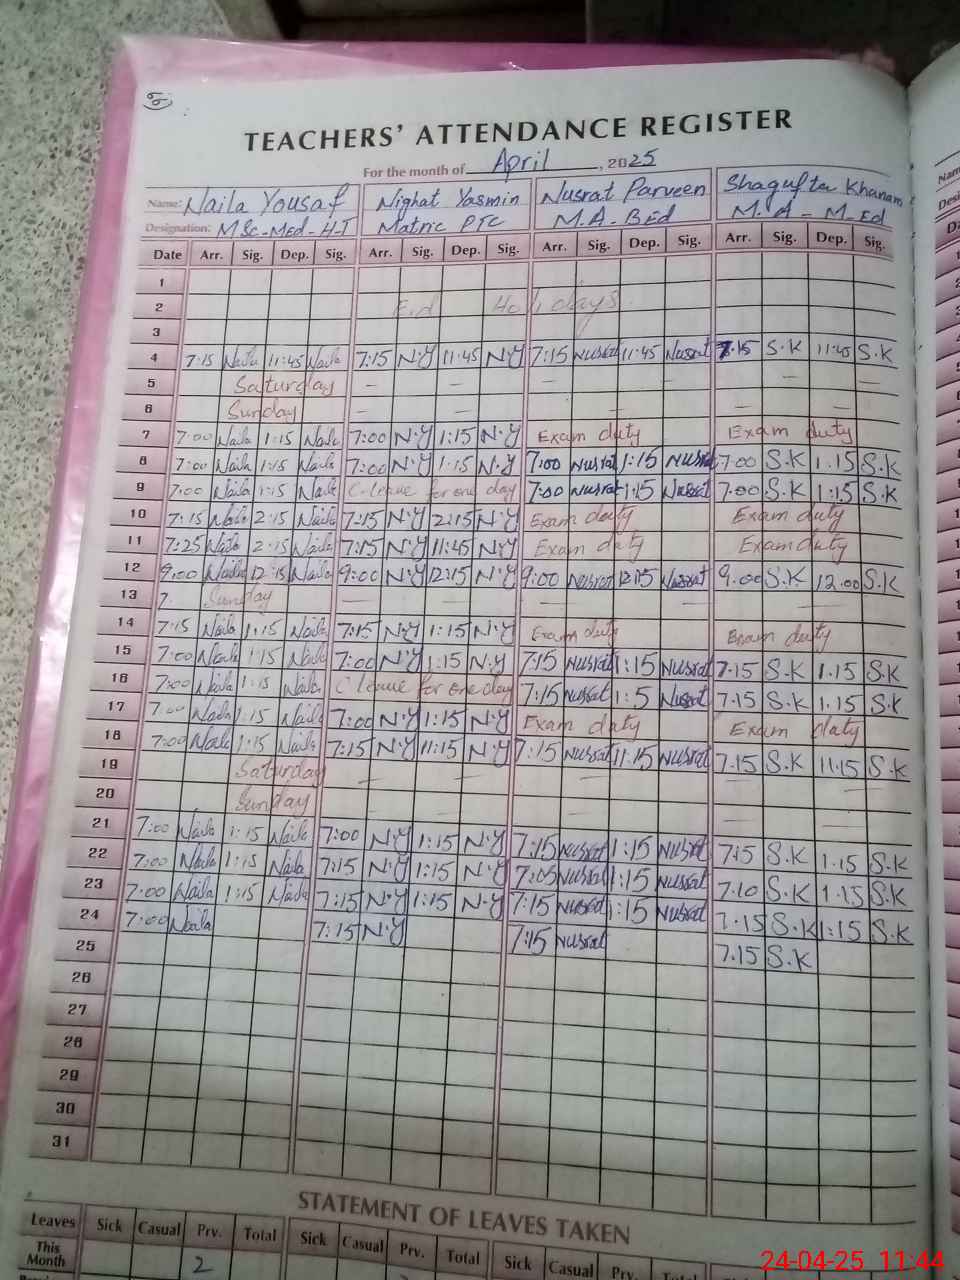 TEACHERS' ATTENDANCE REGISTER
For the month of April, 2025
Name: Naila Yousaf Nighat Yasmin Nusrat Parveen Shagufta Khanam
Designation: MSc-Med-H-T Matric PTC M.A - BEd M.A - M-Ed
Date Arr. Sig. Dep. Sig. Arr. Sig. Dep. Sig. Arr. Sig. Dep. Sig. Arr. Sig. Dep. Sig.
1
2 Eid Holidays
3
4 7:15 Naila 11:45 Naila 7:15 N.Y 11:45 N.Y 7:15 Nusrat 11:45 Nusrat 7.15 S.K 11:45 S.K
5 Saturday — — — — —
6 Sunday — — — — —
7 7:00 Naila 1:15 Naila 7:00 N.Y 1:15 N.Y Exam duty Exam duty
8 7:00 Naila 1:15 Naila 7:00 N.Y 1:15 N.Y 7:00 Nusrat 1:15 Nusrat 7.00 S.K 1.15 S.K
9 7:00 Naila 1:15 Naila C-leave for one day 7:00 Nusrat 1:15 Nusrat 7.00 S.K 1.15 S.K
10 7:15 Naila 2:15 Naila 7:15 N.Y 2:15 N.Y Exam duty Exam duty
11 7:25 Naila 2:15 Naila 7:15 N.Y 11:45 N.Y Exam duty Exam duty
12 9:00 Naila 12:15 Naila 9:00 N.Y 12:15 N.Y 9:00 Nusrat 12:15 Nusrat 9.00 S.K 12.00 S.K
13 7. Sunday — — — — —
14 7:15 Naila 1:15 Naila 7:15 N.Y 1:15 N.Y Exam duty Exam duty
15 7:00 Naila 1:15 Naila 7:00 N.Y 1:15 N.Y 7:15 Nusrat 1:15 Nusrat 7.15 S.K 1.15 S.K
16 7:00 Naila 1:15 Naila C leave for one day 7:15 Nusrat 1:5 Nusrat 7.15 S.K 1.15 S.K
17 7:00 Naila 1:15 Naila 7:00 N.Y 1:15 N.Y Exam duty Exam duty
18 7:00 Naila 1:15 Naila 7:15 N.Y 11:15 N.Y 7:15 Nusrat 11:15 Nusrat 7.15 S.K 11.15 S.K
19 Saturday — — — — —
20 Sunday — — — — —
21 7:00 Naila 1:15 Naila 7:00 N.Y 1:15 N.Y 7:15 Nusrat 1:15 Nusrat 7:15 S.K 1.15 S.K
22 7:00 Naila 1:15 Naila 7:15 N.Y 1:15 N.Y 7:05 Nusrat 1:15 Nusrat 7.10 S.K 1.15 S.K
23 7:00 Naila 1:15 Naila 7:15 N.Y 1:15 N.Y 7:15 Nusrat 1:15 Nusrat 7.15 S.K 1:15 S.K
24 7:00 Naila 7:15 N.Y 7:15 Nusrat 7.15 S.K
25
26
27
28
29
30
31
STATEMENT OF LEAVES TAKEN
Leaves Sick Casual Prv. Total Sick Casual Prv. Total Sick Casual Prv. Total Sick
This Month 2
24-04-25 11:44